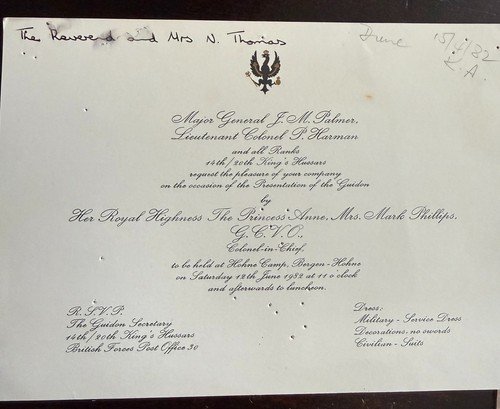 The Reverend and Mrs N. Thomas
June 15/4/82
R.A.
Major General J. M. Palmer,
Lieutenant Colonel P. Harman
and all Ranks
14th/20th King's Hussars
request the pleasure of your company
on the occasion of the Presentation of the Guidon
by
Her Royal Highness The Princess Anne, Mrs. Mark Phillips,
G.C.V.O.,
Colonel-in-Chief,
to be held at Hohne Camp, Bergen-Hohne
on Saturday 12th June 1982 at 11 o'clock
and afterwards to luncheon.
R.S.V.P.
The Guidon Secretary
14th/20th King's Hussars
British Forces Post Office 30
Dress:
Military - Service Dress
Decorations. no swords
Civilian - Suits